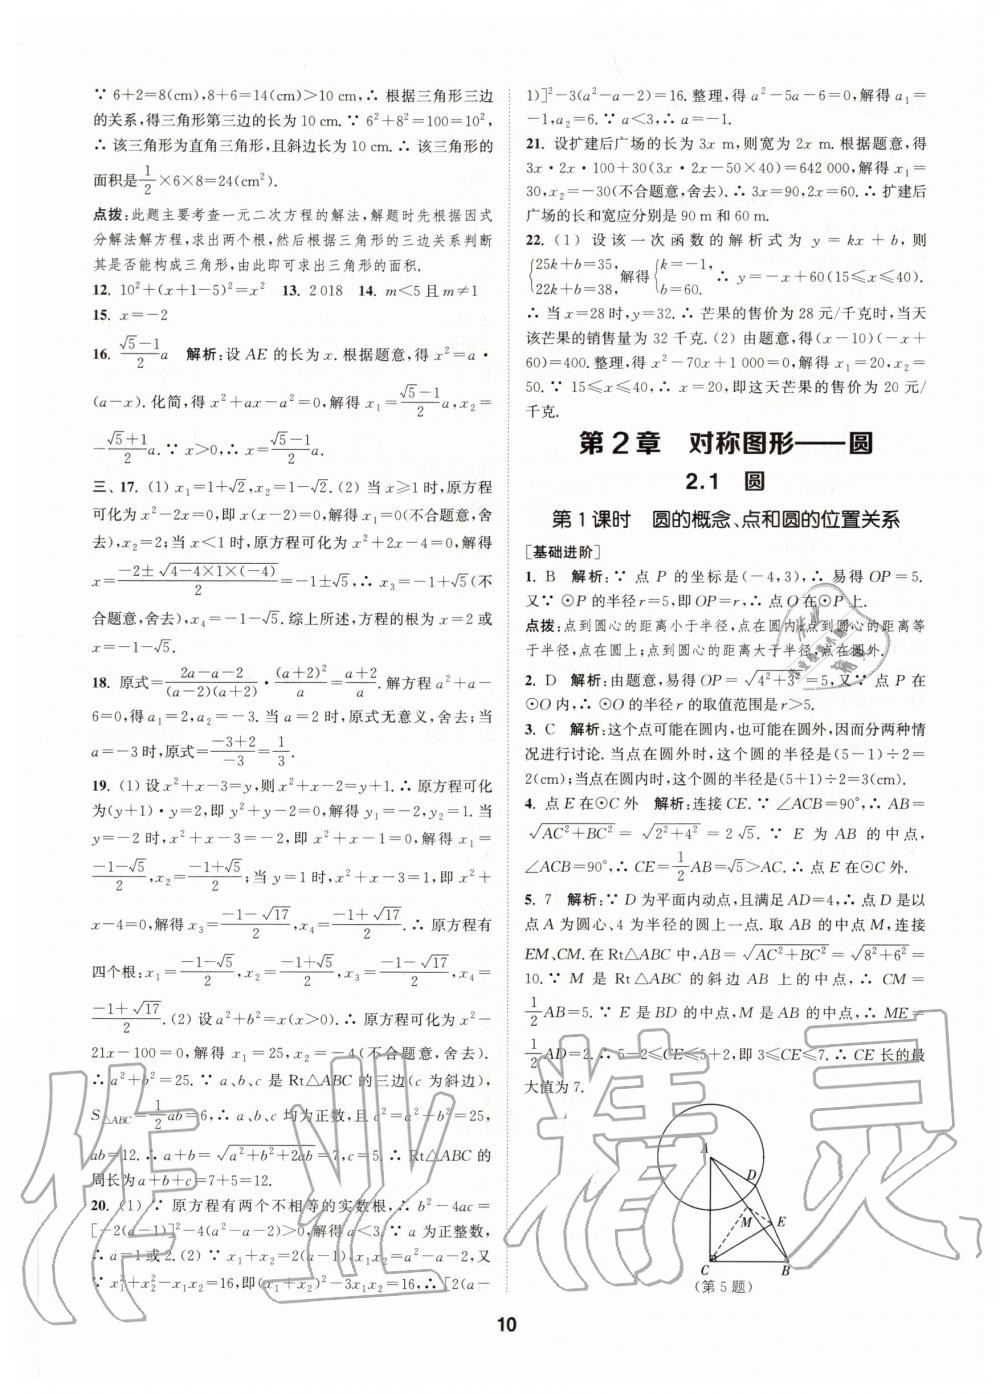 ∵ 6+2=8(cm),8+6=14(cm)>10 cm,∴ 根据三角形三边
的关系,得三角形第三边的长为10 cm. ∵ 6²+8²=100=10²,
∴ 该三角形为直角三角形,且斜边长为10 cm. ∴ 该三角形的
面积是1/2×6×8=24(cm²).
点拨:此题主要考查一元二次方程的解法,解题时先根据因式
分解法解方程,求出两个根,然后根据三角形的三边关系判断
其是否能构成三角形,由此即可求出三角形的面积.
12. 10²+(x+1-5)²=x² 13. 2 018 14. m<5且m≠1
15. x=-2
16. (√5-1)/2 a 解析:设AE的长为x.根据题意,得x²=a·
(a-x).化简,得x²+ax-a²=0,解得x₁=(√5-1)/2 a,x₂=
-(√5+1)/2 a. ∵ x>0,∴ x=(√5-1)/2 a.
三、17. (1) x₁=1+√2,x₂=1-√2. (2) 当x≥1时,原方程
可化为x²-2x=0,即x(x-2)=0,解得x₁=0(不合题意,舍
去),x₂=2;当x<1时,原方程可化为x²+2x-4=0,解得
x=(-2±√(4-4×1×(-4)))/2=-1±√5,∴ x₃=-1+√5(不
合题意,舍去),x₄=-1-√5.综上所述,方程的根为x=2或
x=-1-√5.
18. 原式=(2a-a-2)/((a-2)(a+2))·(a+2)²/a=(a+2)/a.解方程a²+a-
6=0,得a₁=2,a₂=-3.当a=2时,原式无意义,舍去;当
a=-3时,原式=(-3+2)/(-3)=1/3.
19. (1) 设x²+x-3=y,则x²+x-2=y+1. ∴ 原方程可化
为(y+1)·y=2,即y²+y-2=0,解得y₁=-2,y₂=1.当
y=-2时,x²+x-3=-2,即x²+x-1=0,解得x₁=
(-1-√5)/2,x₂=(-1+√5)/2;当y=1时,x²+x-3=1,即x²+
x-4=0,解得x₃=(-1-√17)/2,x₄=(-1+√17)/2. ∴ 原方程有
四个根:x₁=(-1-√5)/2,x₂=(-1+√5)/2,x₃=(-1-√17)/2,x₄=
(-1+√17)/2. (2) 设a²+b²=x(x>0). ∴ 原方程可化为x²-
21x-100=0,解得x₁=25,x₂=-4(不合题意,舍去).
∴ a²+b²=25. ∵ a、b、c是Rt△ABC的三边(c为斜边),
S△ABC=1/2 ab=6,∴ a、b、c均为正数,且a²+b²=25,
ab=12. ∴ a+b=√(a²+b²+2ab)=7,c=5. ∴ Rt△ABC的
周长为a+b+c=7+5=12.
20. (1) ∵ 原方程有两个不相等的实数根,∴ b²-4ac=
[-2(a-1)]²-4(a²-a-2)>0,解得a<3. ∵ a为正整数,
∴ a=1或2. (2) ∵ x₁+x₂=2(a-1),x₁x₂=a²-a-2,又
∵ x₁²+x₂²-x₁x₂=16,即(x₁+x₂)²-3x₁x₂=16,∴ [2(a-
1)]²-3(a²-a-2)=16.整理,得a²-5a-6=0,解得a₁=
-1,a₂=6. ∵ a<3,∴ a=-1.
21. 设扩建后广场的长为3x m,则宽为2x m.根据题意,得
3x·2x·100+30(3x·2x-50×40)=642 000,解得x₁=
30,x₂=-30(不合题意,舍去). ∴ 3x=90,2x=60. ∴ 扩建后
广场的长和宽应分别是90 m和60 m.
22. (1) 设该一次函数的解析式为y=kx+b,则
{25k+b=35, 22k+b=38, 解得{k=-1, b=60. ∴ y=-x+60(15≤x≤40).
∴ 当x=28时,y=32. ∴ 芒果的售价为28元/千克时,当天
该芒果的销售量为32千克. (2) 由题意,得(x-10)(-x+
60)=400.整理,得x²-70x+1 000=0,解得x₁=20,x₂=
50. ∵ 15≤x≤40,∴ x=20,即这天芒果的售价为20元/
千克.
第2章 对称图形——圆
2.1 圆
第1课时 圆的概念、点和圆的位置关系
[基础进阶]
1. B 解析:∵ 点P的坐标是(-4,3),∴ 易得OP=5.
又∵ ⊙P的半径r=5,即OP=r,∴ 点O在⊙P上.
点拨:点到圆心的距离小于半径,点在圆内;点到圆心的距离等
于半径,点在圆上;点到圆心的距离大于半径,点在圆外.
2. D 解析:由题意,易得OP=√(4²+3²)=5,又∵ 点P在
⊙O内,∴ ⊙O的半径r的取值范围是r>5.
3. C 解析:这个点可能在圆内,也可能在圆外,因而分两种情
况进行讨论.当点在圆外时,这个圆的半径是(5-1)÷2=
2(cm);当点在圆内时,这个圆的半径是(5+1)÷2=3(cm).
4. 点E在⊙C外 解析:连接CE. ∵ ∠ACB=90°,∴ AB=
√(AC²+BC²)=√(2²+4²)=2√5. ∵ E为AB的中点,
∠ACB=90°,∴ CE=1/2 AB=√5>AC. ∴ 点E在⊙C外.
5. 7 解析:∵ D为平面内动点,且满足AD=4,∴ 点D是以
点A为圆心、4为半径的圆上一点.取AB的中点M,连接
EM、CM.在Rt△ABC中,AB=√(AC²+BC²)=√(8²+6²)=
10. ∵ M是Rt△ABC的斜边AB上的中点,∴ CM=
1/2 AB=5. ∵ E是BD的中点,M是AB的中点,∴ ME=
1/2 AD=2. ∴ 5-2≤CE≤5+2,即3≤CE≤7. ∴ CE长的最
大值为7.
A
D
M
E
C
B
(第5题)
10
作业精灵